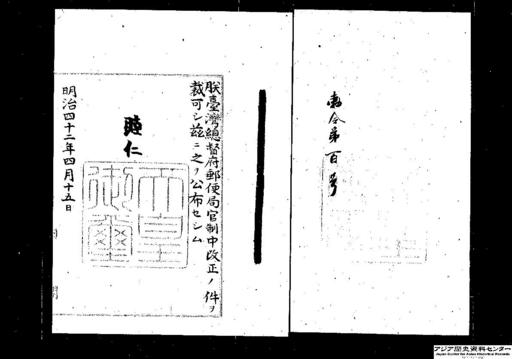 勅令第百号
朕臺灣總督府郵便局官制中改正ノ件ヲ
裁可シ茲ニ之ヲ公布セシム
睦仁
天皇御璽
明治四十二年四月十五日
アジア歴史資料センター
Japan Center for Asian Historical Records